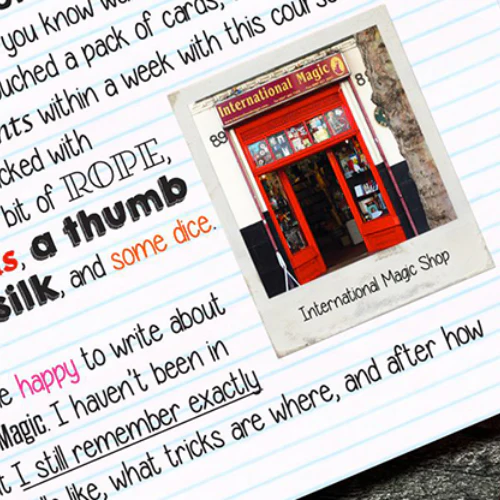 you know
ouched a pack of cards,
nts within a week with this cours
cked with
bit of ROPE,
s, a thumb
silk, and some dice.
International Magic
89
8
International Magic Shop
e happy to write about
Magic. I haven't been in
t I still remember exactly
like, what tricks are where, and after how